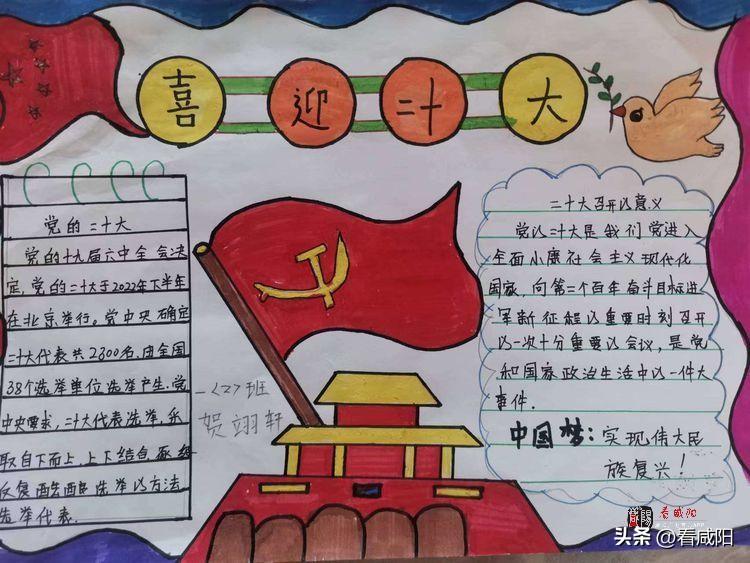 喜迎二十大
党的二十大
党的十九届六中全会决
定,党的二十大于2022年下半年
在北京举行。党中央确定
二十大代表共2300名,由全国
38个选举单位选举产生.党
中央要求,二十大代表选举,采
取自下而上,上下结合
反复酝酿 选举以方法
选举代表.
一<2>班
贺翊轩
二十大召开以意义
党以二十大是我们党进入
全面小康社会主义现代化
国家,向第二个百年奋斗目标进
军新征程以重要时刻召开
以一次十分重要以会议,是党
和国家政治生活中以一件大
事件.
中国梦:实现伟大民
族复兴!
看咸阳
头条 @看咸阳